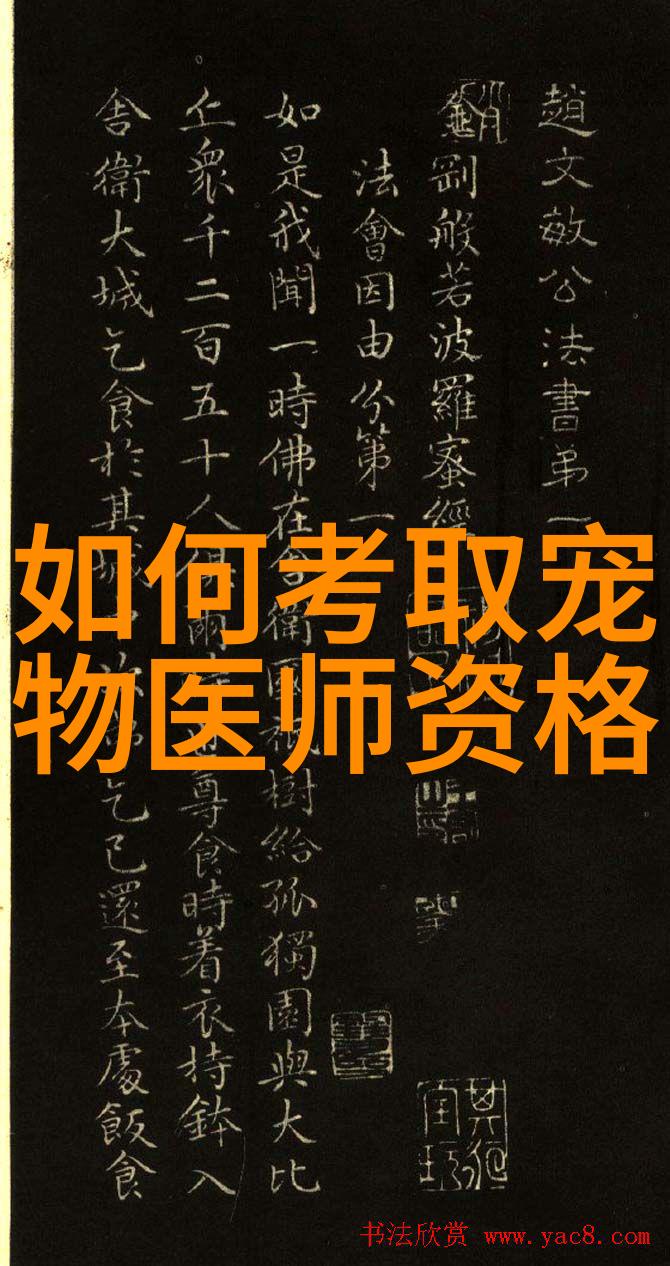 趙文敏公法書弟一
金剛般若波羅蜜經
法會因由分第一
如是我聞一時佛在舍衛國祇樹給孤獨園與大比
丘衆千二百五十人俱爾時世尊食時着衣持鉢入
舎衛大城乞食於其城中次第乞已還至本處飯食
如何考取宠
物医师资格
书法欣赏 www.yac8.com